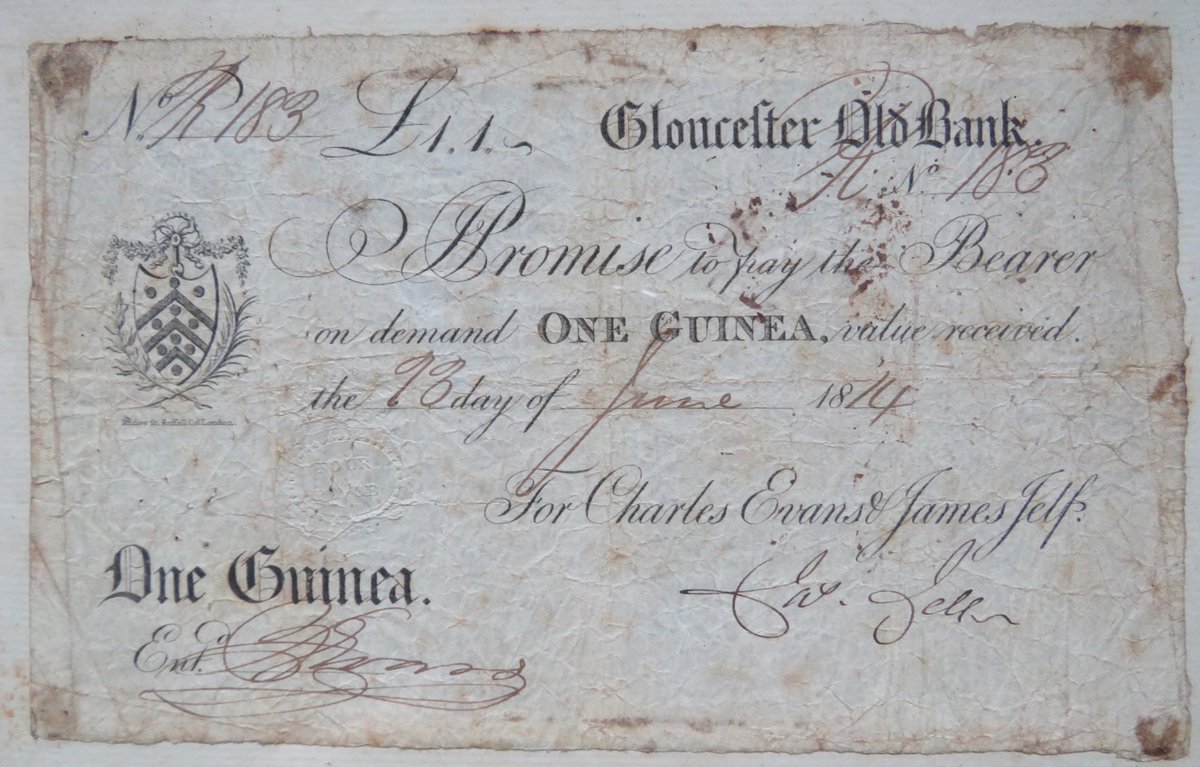 No. 183 £1.1.
Glouceſter Old Bank.
No. 183
I Promise to pay the Bearer
on demand ONE GUINEA, value received.
the 23 day of June 1814
For Charles Evans & James Jelf.
One Guinea.
Entd. Evans